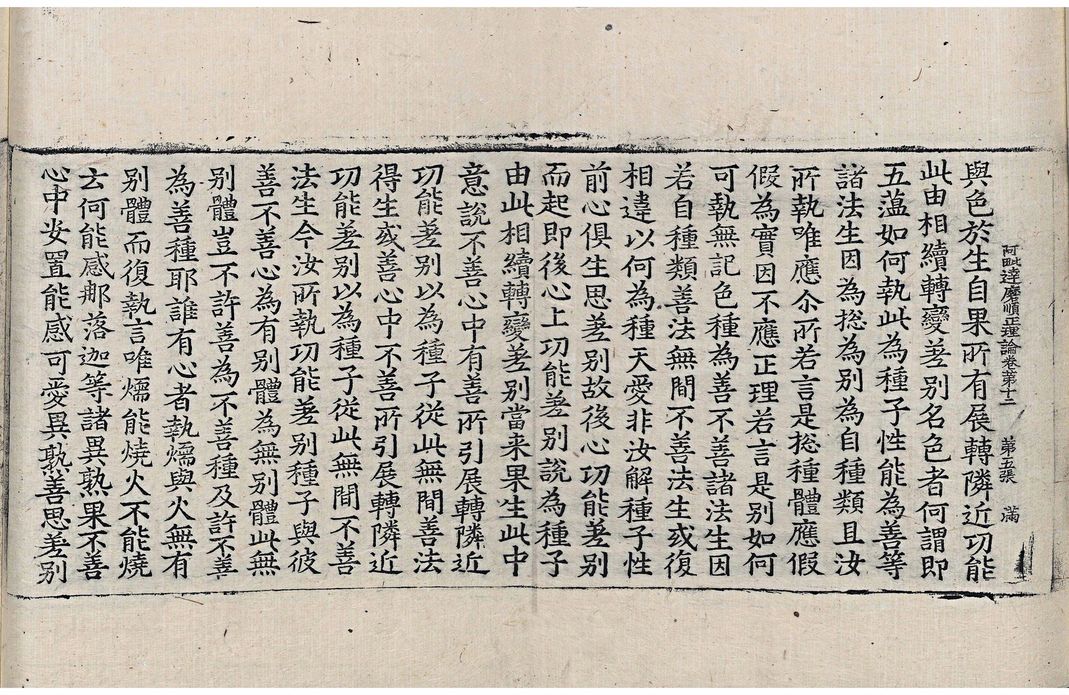 阿毗達磨順正理論卷第十二　第五張　滿
與色於生自果所有展轉隣近功能
此由相續轉變差別名色者何謂即
五蘊如何執此為種子性能為善等
諸法生因為捴為別為自種類且汝
所執唯應尒所若言是捴種體應假
假為實因不應正理若言是別如何
可執無記色種為善不善諸法生因
若自種類善法無間不善法生或復
相違以何為種天愛非汝解種子性
前心俱生思差別故後心功能差別
而起即後心上功能差別說為種子
由此相續轉變差別當来果生此中
意說不善心中有善所引展轉隣近
功能差別以為種子從此無間善法
得生或善心中不善所引展轉隣近
功能差別以為種子從此無間不善
法生今汝所執功能差別種子與彼
善不善心為有別體為無別體此無
別體豈不許善為不善種及許不善
為善種耶誰有心者執燸與火無有
別體而復執言唯燸能燒火不能燒
云何能感那落迦等諸異熟果不善
心中安置能感可愛異熟善思差別